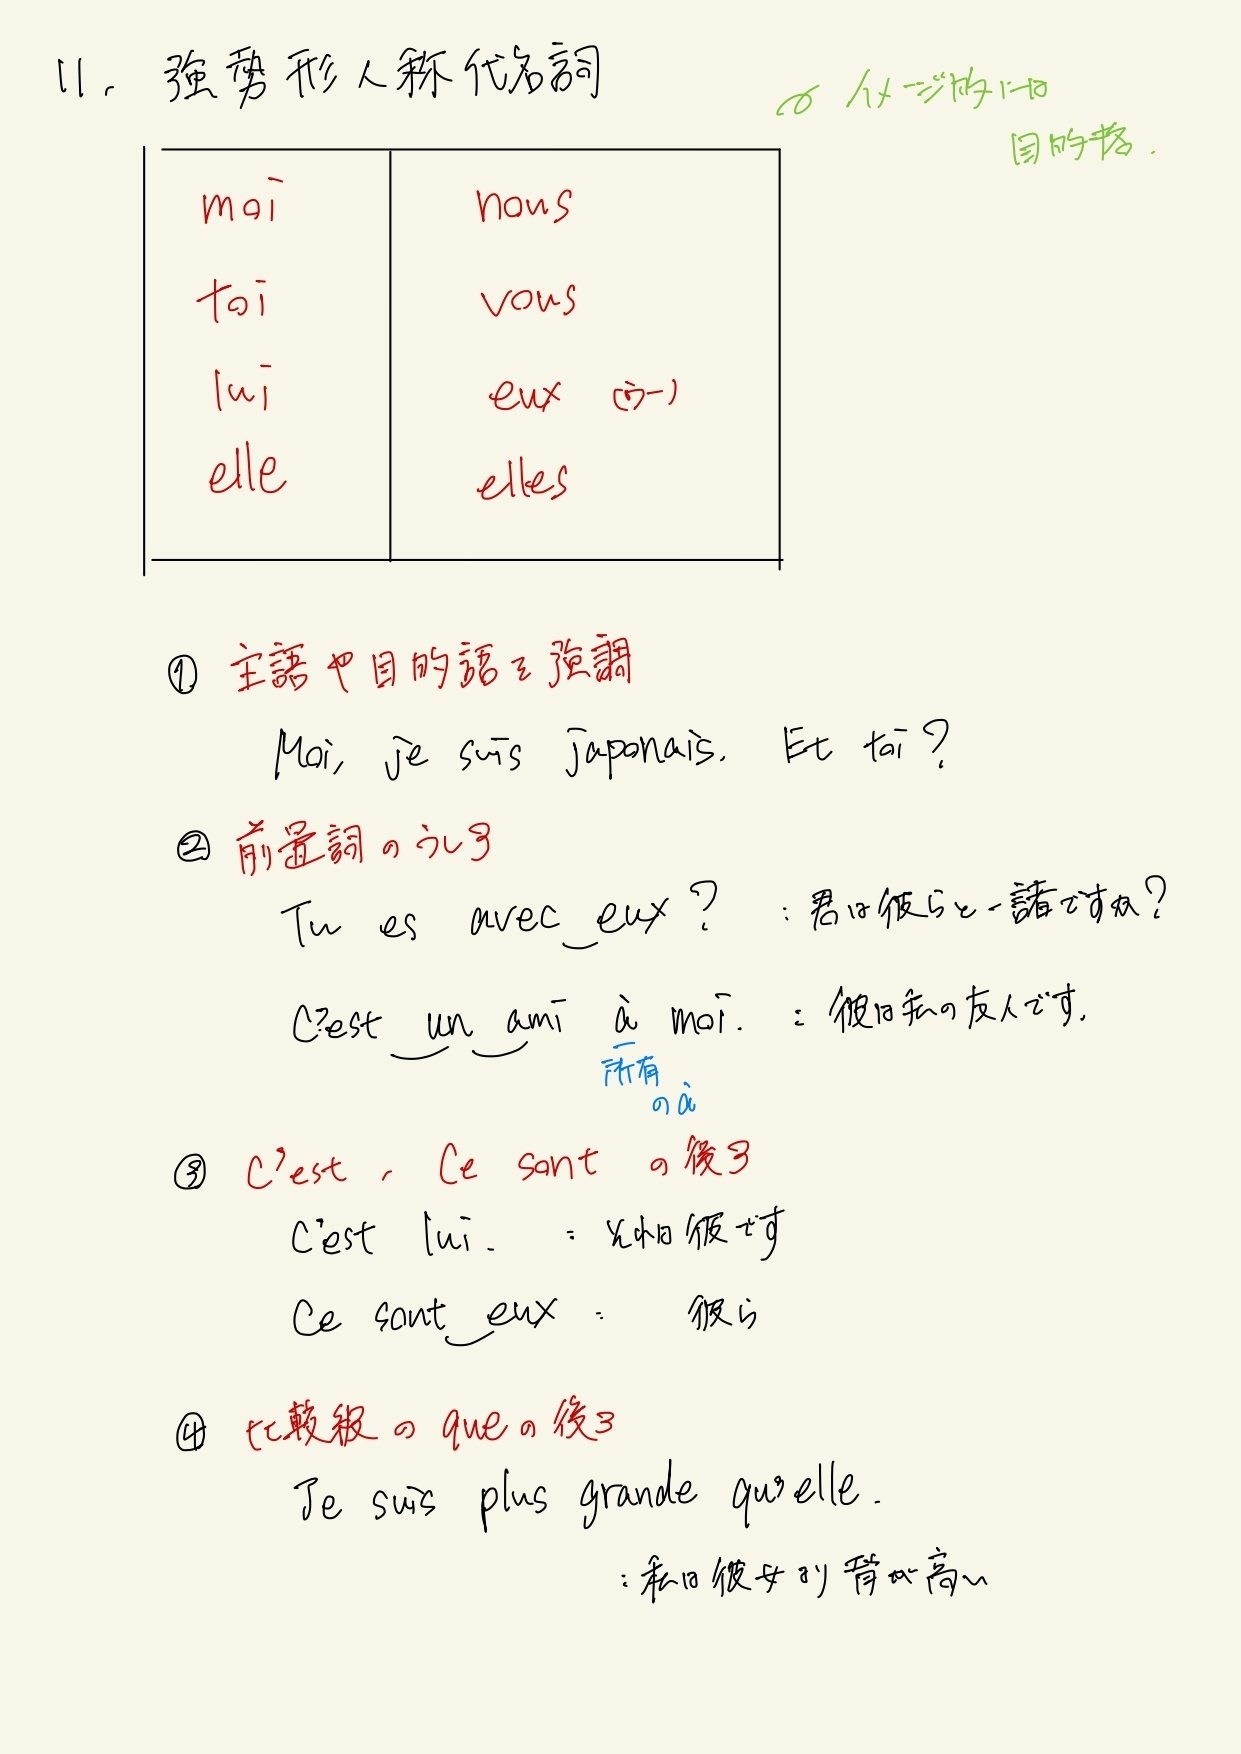 11. 強勢形人称代名詞
イメージ的には
目的格.
moi nous
toi vous
lui eux (ウー)
elle elles
① 主語や目的語を強調
Moi, je suis japonais. Et toi?
② 前置詞のうしろ
Tu es avec eux? : 君は彼らと一諸ですか?
C'est un ami à moi. : 彼は私の友人です.
所有
のà
③ C'est, Ce sont の後ろ
C'est lui. : それは彼です
Ce sont eux : 彼ら
④ 比較級のqueの後ろ
Je suis plus grande qu'elle.
: 私は彼女より背が高い